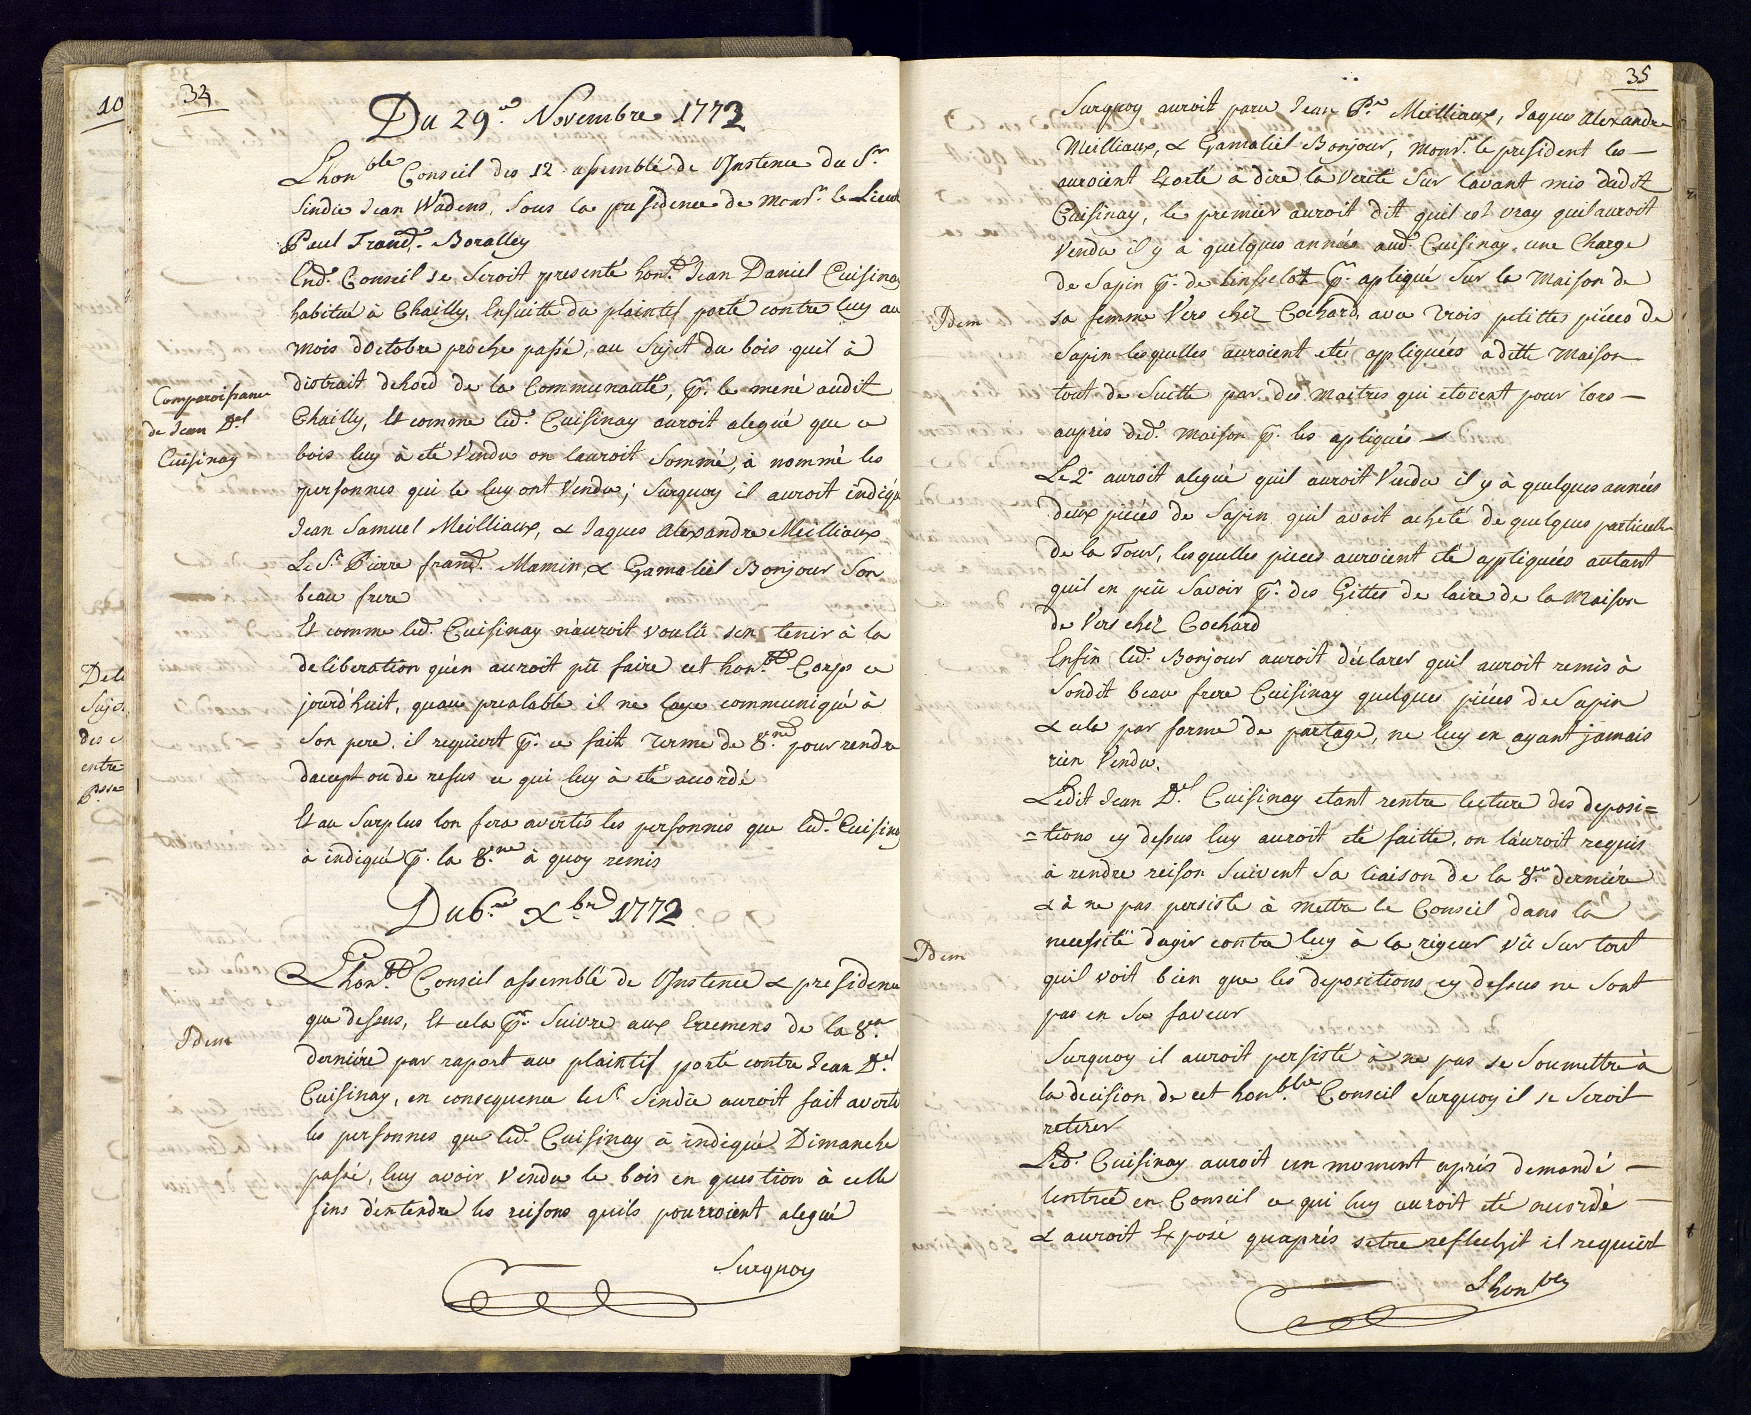 10
34
Du 29.e Novembre 1772
Lhonble Conseil des 12 assemblé de Instence du Sr.
Sindic Jean Wadens, sous la presidence de Monsr. le Lieut
Paul Frand. Boralley
End. Conseil se seroit presenté hond. Jean Daniel Cuisinay
habitué à Chailly, Ensuitte du plaintif porté contre luy au
mois doctobre proche passé, au sujet du bois quil à
distrait dehord de la Communauté, pr. le mené audit
Comparoissance
de Jean Del
Cuisinay
Chailly, Et comme led. Cuisinay auroit alegué que ce
bois luy à eté Vendu on lauroit sommé, à nommé les
personnes qui le luy ont Vendu; surquoy il auroit indiqu
Jean Samuel Meilliaux, & Jaques Alexandre Meilliaux
Le Sr. Pierre frand. Mamin, & Gamaliel Bonjour son
beau frere
Et comme led. Cuisinay n'auroit voulü sen tenir à la
deliberation qu'en auroit pü faire cet hon.ble Corps ce
jourd'huit, quau prealable il ne laye communiqué à
son pere, il requiert pr. ce fait terme de 8.ne pour rendre
dacept ou de refus ce qui luy à eté acordé
Et au surplus lon fera avertis les personnes que led. Cuisinay
à indiqué pr. la 8.ne à quoy remis
Du 6.e Xbre 1772
Lhon.ble Conseil assemblé de Instence & presidence
que dessus, Et cela pr. suivre aux Erremens de la 8.ne
Idem
derniére par raport au plaintif porté contre Jean D.el
Cuisinay, en consequence le Sr. Sindic auroit fait averti
les personnes que led. Cuisinay à indiqué Dimanche
passé, luy avoir Vendu le bois en question à celle
fins d'entendre les reisons quils pourroient alegué
Surquoy
Delb
Sujet
des
entre
35
Surquoy auroit paru Jean P.re Meilliaux, Jaques Alexandre
Meilliaux, & Gamaliel Bonjour, Monsr. le president les
auroient Exorté a dire la Verité sur lavant mis dudit
Cuisinay, le premier auroit dit quil est vray quil auroit
Vendu il y à quelques année aud. Cuisinay une Charge
de Sapin pr. de linsselot pr. apliqué sur la Maison de
Idem
sa femme Vers chéz Cochard, avec trois petittes piéces de
Sapin lesquelles auroient eté appliquées à ditte Maison
tout de suitte par des Maitres qui etoient pour lors
auprés ded. Maison pr. les apliqués
Le 2.e auroit alegué quil auroit Vendu il y à quelques années
deux piecés de Sapin quil avoit acheté de quelques particulier
de la Tour, lesquelles pieces auroient eté appliquées autant
quil en peü savoir pr. des Gittes de laire de la Maison
de Vers chéz Cochard
Enfin led. Bonjour auroit déclarer quil auroit remis à
sondit beau frere Cuisinay quelques piéces de Sapin
& cela par forme de partage, ne luy en ayant jamais
rien Vendu.
Ledit Jean D.el Cuisinay etant rentre lecture des deposi=
=tions cy dessus luy auroit eté faitte, on láuroit requis
à rendre reison suivent sa liaison de la 8.ne derniére
& à ne pas persiste à Mettre le Conseil dans la
necessité dagir contre luy à la rigeur vü sur tout
Idem
quil voit bien que les depositions cy dessus ne sont
pas en sa faveur
Surquoy il auroit persisté à ne pas se soumettre à
la decision de cet hon.ble Conseil Surquoy il se seroit
retirer
Led. Cuisinay auroit un moment aprés demandé
lentreé en Conseil ce qui luy auroit eté acordé
& auroit Exposé quaprés setre reflechit il requiert
Lhonble